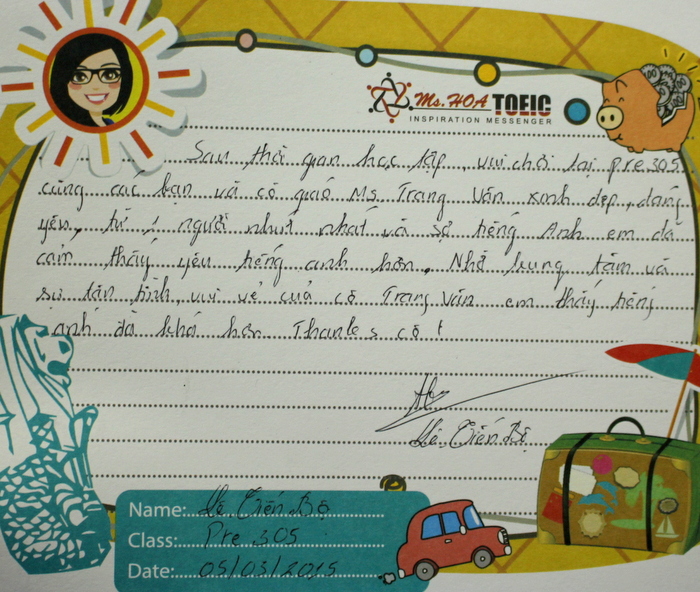 Ms. HOA TOEIC
INSPIRATION MESSENGER
Sau thời gian học tập, vui chơi tại pre 305
cùng các bạn và cô giáo Ms. Trang Vân xinh đẹp, đáng
yêu, từ 1 người nhút nhát và sợ tiếng Anh em đã
cảm thấy yêu tiếng anh hơn. Nhờ trung tâm và
sự tận tình, vui vẻ của cô Trang Vân em thấy tiếng
anh đã khá hơn Thanks cô!
Lê Tiến Bộ
Name: Lê Tiến Bộ
Class: Pre 305
Date: 05/03/2015